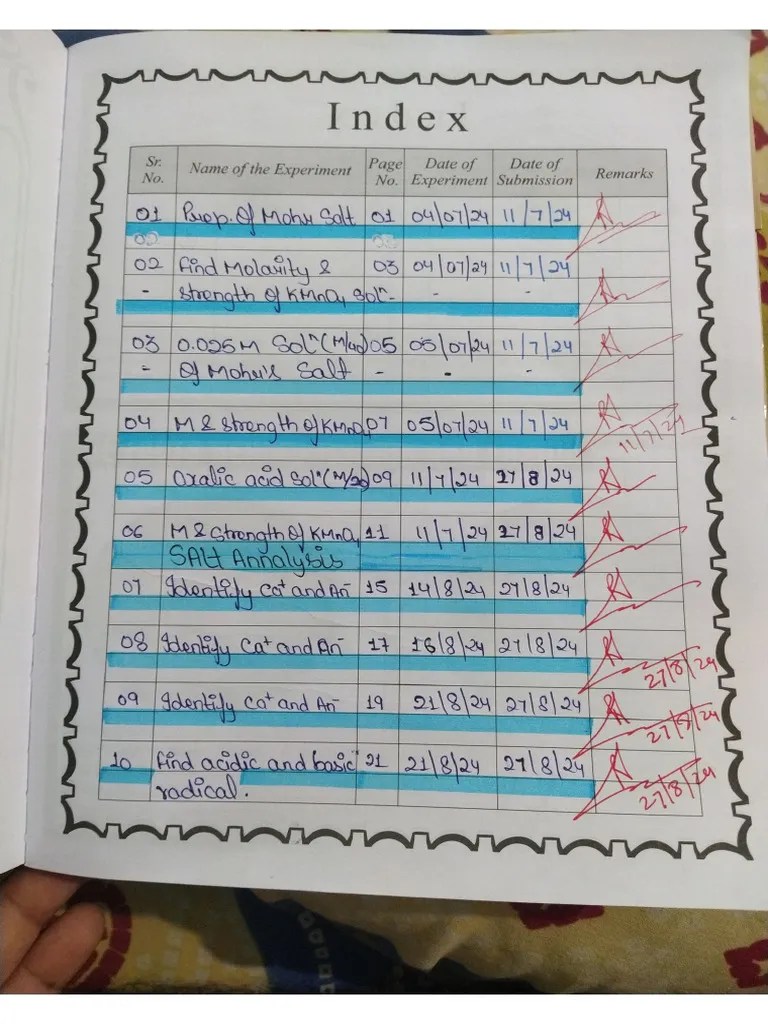 Index
Sr. No. Name of the Experiment Page No. Date of Experiment Date of Submission Remarks
01 Prep. Of Mohr Salt 01 04/07/24 11/7/24
02 Find Molarity & 03 04/07/24 11/7/24
- Strength of KMnO4 Solⁿ - - -
03 0.025M Solⁿ (M/40) 05 05/07/24 11/7/24
- Of Mohr's Salt - - -
04 M & Strength of KMnO4 07 05/07/24 11/7/24
11/7/24
05 Oxalic acid Solⁿ (M/20) 09 11/7/24 27/8/24
06 M & Strength Of KMnO4 11 11/7/24 27/8/24
SAlt Annalysis
07 Identify Ca⁺ and An⁻ 15 14/8/24 27/8/24
08 Identify Ca⁺ and An⁻ 17 16/8/24 27/8/24
27/8/24
09 Identify Ca⁺ and An⁻ 19 21/8/24 27/8/24
27/8/24
10 find acidic and basic 21 21/8/24 27/8/24
radical.
27/8/24